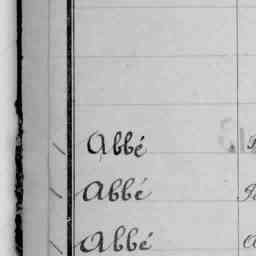 Abbé
Abbé
Abbé